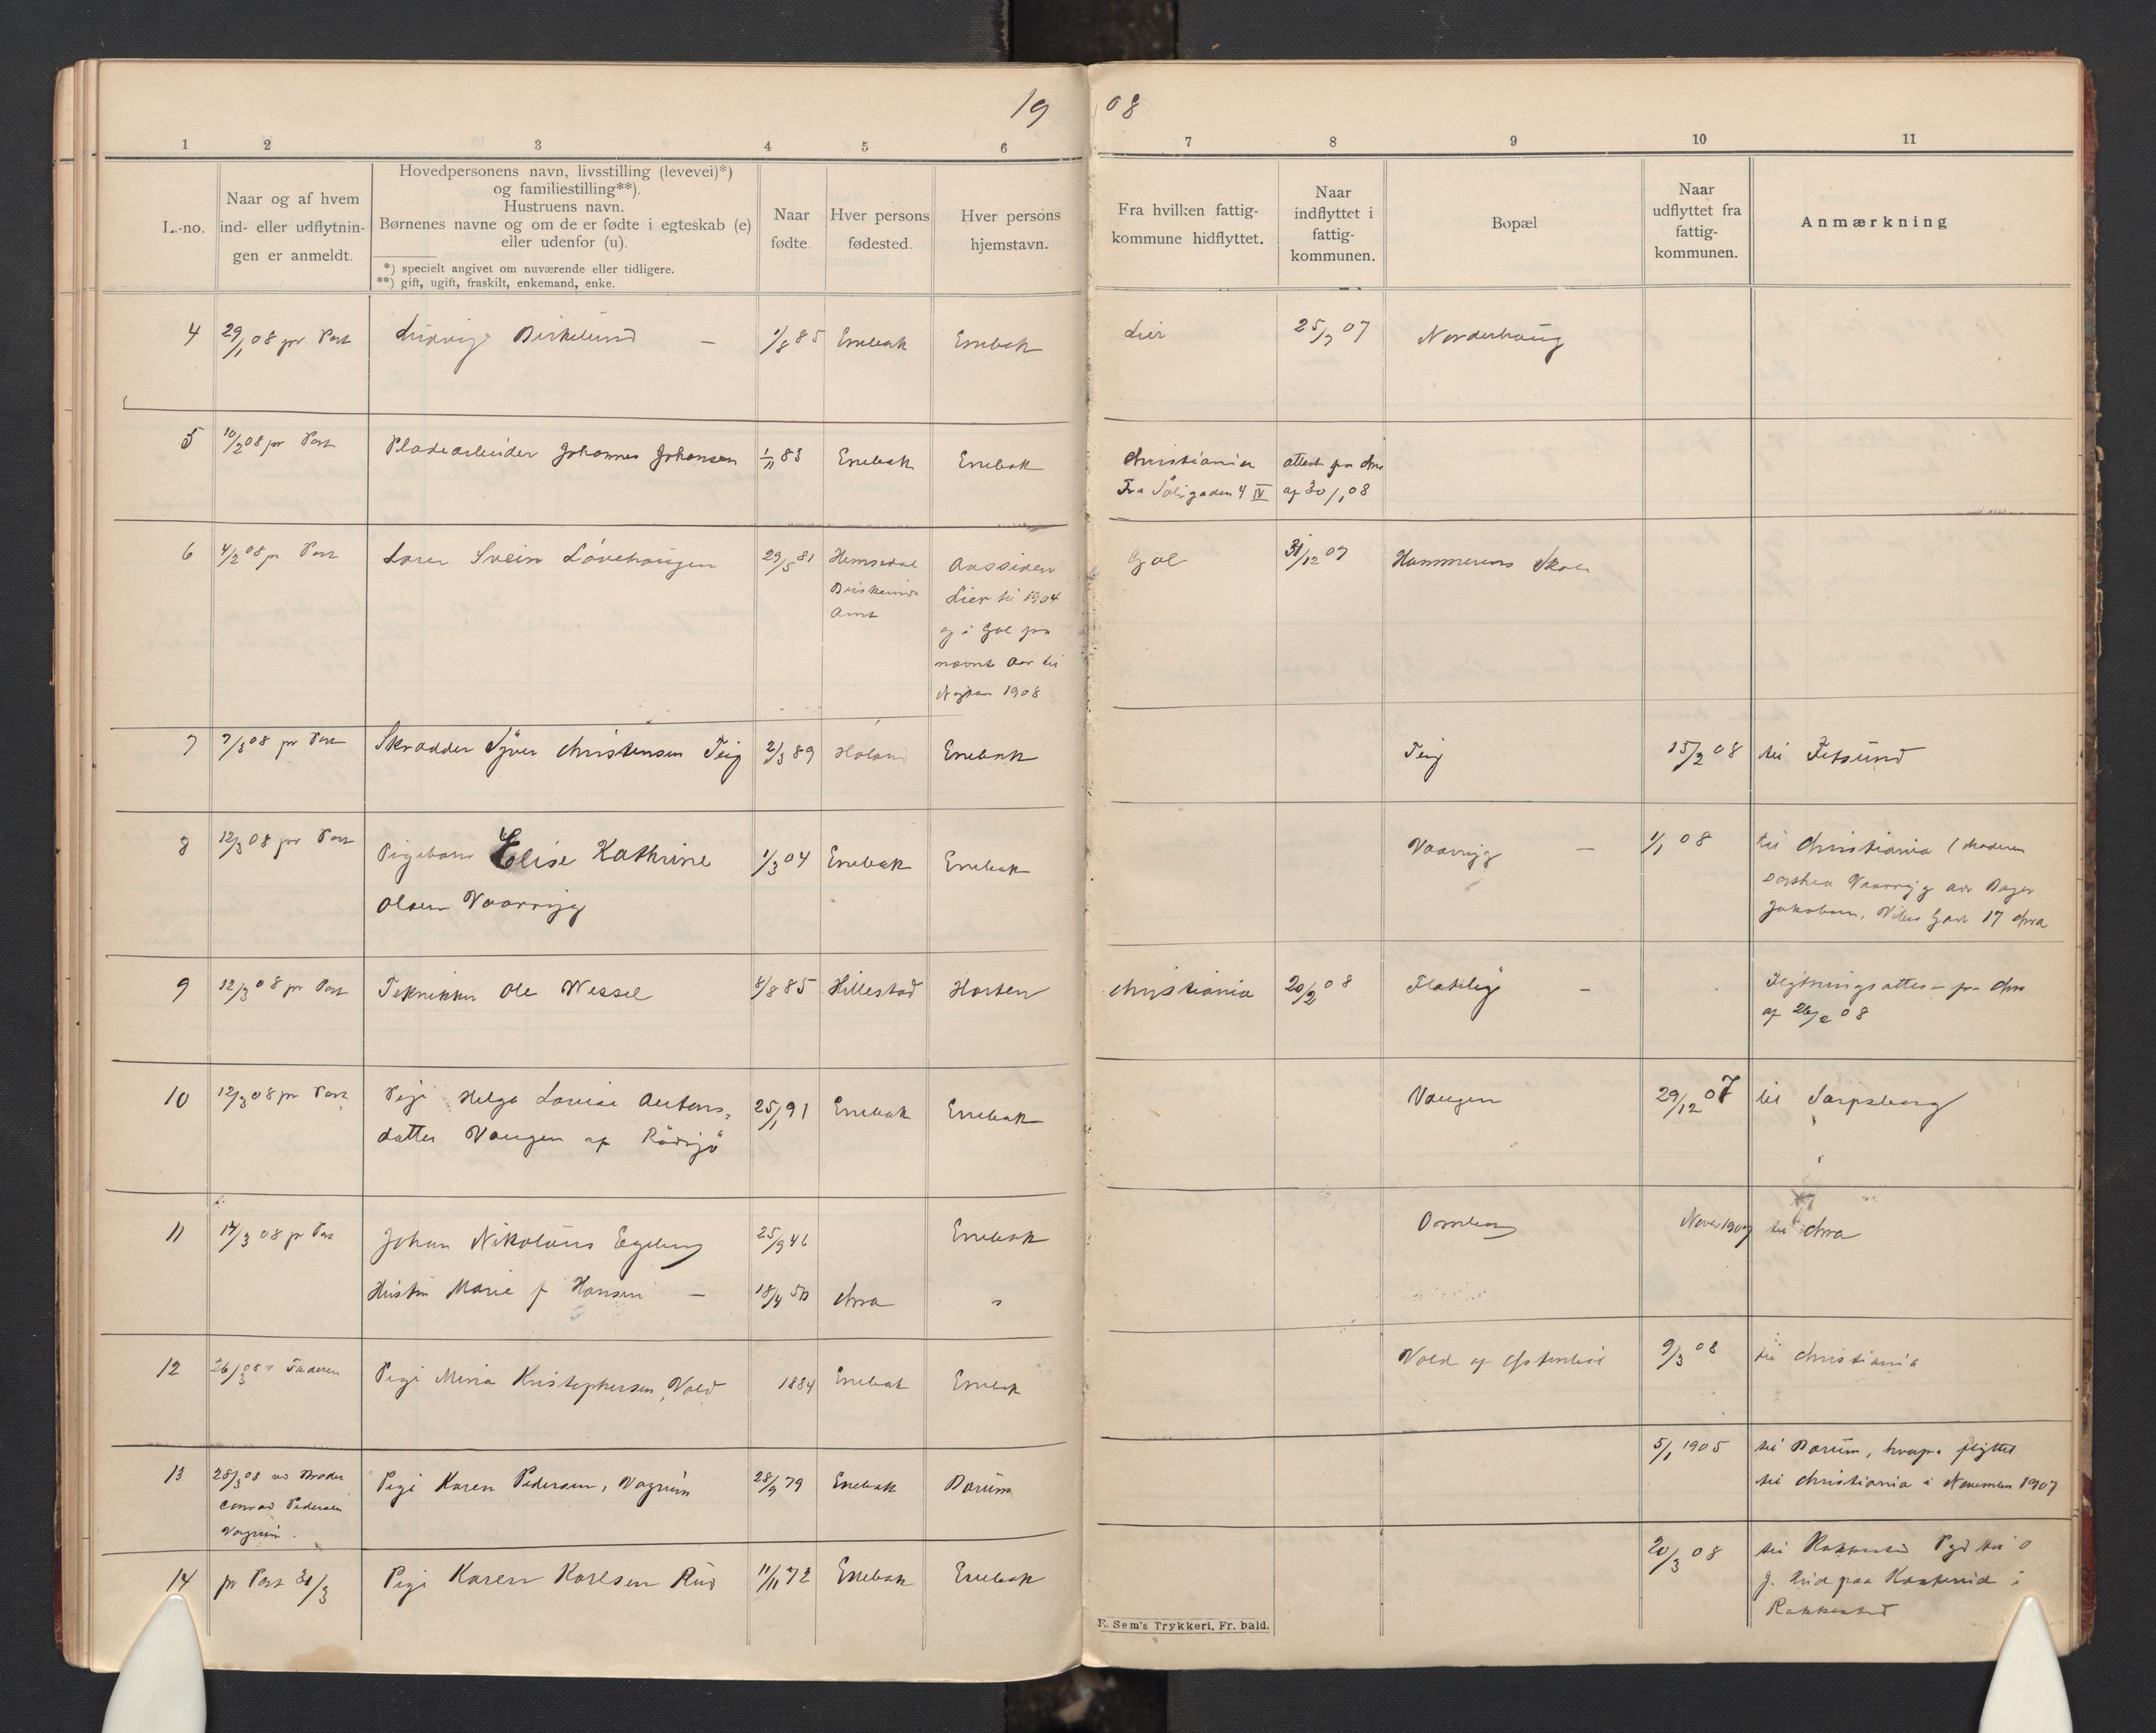 19 08
1 2 3 4 5 6 7 8 9 10 11
L.-no.
Naar og af hvem
ind- eller udflytnin-
gen er anmeldt.
Hovedpersonens navn, livsstilling (levevei)*)
og familiestilling**).
Hustruens navn.
Børnenes navne og om de er fødte i egteskab (e)
eller udenfor (u).
*) specielt angivet om nuværende eller tidligere.
**) gift, ugift, fraskilt, enkemand, enke.
Naar
fødte.
Hver persons
fødested.
Hver persons
hjemstavn.
Fra hvilken fattig-
kommune hidflyttet.
Naar
indflyttet i
fattig-
kommunen.
Bopæl
Naar
udflyttet fra
fattig-
kommunen.
Anmærkning
4 29/1 08 pr Post Ludvig Birkelund – 1/8 85 Enebak Enebak Lier 25/7 07 Norderhaug
5 10/2 08 pr Post Pladearbeider Johannes Johansen 1/11 83 Enebak Enebak Christiania attest fra Chra
Fra 4 IV af 30/1 08
6 4/2 08 pr Post Lærer Svein Løvehaugen 29/5 81 Hemsedal Aassiden Gol 31/12 07 Hammerens Skole
Buskeruds Lier til 1904
Amt og i Gol fra
nævnte Aar til
Nytaar 1908
7 7/3 08 pr Post Skrædder Syver Christensen Teig 2/3 89 Høland Enebak Teig 15/2 08 til Fetsund
8 12/3 08 pr Post Pigebarn Elise Kathrine 1/3 04 Enebak Enebak Vaarryg – 1/1 08 til Christiania (Moderen
Olsen Vaarryg Dorthea Vaarryg adr Bager
Jakobsen, Vibes Gade 17 Chra
9 12/3 08 pr Post Tekniker Ole Wessel 4/8 85 Hillestad Horten Christiania 20/2 08 Flateby – Flytningsattest fra Chra
af 26/2 08
10 12/3 08 pr Post Pige Helga Lovise Antons- 25/1 91 Enebak Enebak Vangen 29/12 07 til Sarpsborg
datter Vangen af Rødsjø
11 14/3 08 pr Post Johan Nikolaus Egeberg 25/9 46 Enebak 1907 til Chra
Hustru Marie f Hansen – 18/4 50 Chra "
12 26/3 08 v Faderen Pige Mina Kristophersen, Vold 1884 Enebak Enebak Vold af 9/3 08 til Christiania
13 28/3 08 ved Broder Pige Karen Pedersen, Vagrum 28/9 79 Enebak Bærum 5/1 1905 til Bærum, hvorfra flyttet
Conrad Pedersen til Christiania i November 1907
Vagrum.
14 pr Post 31/3 Pige Karen Karlsen Rud 11/11 72 Enebak Enebak 20/3 08 til Rakkestad
J. Rud paa i
Rakkestad
E. Sem's Trykkeri, Fr. hald.